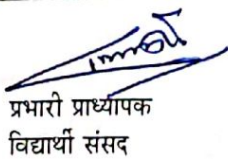 प्रभारी प्राध्यापक
विद्यार्थी संसद